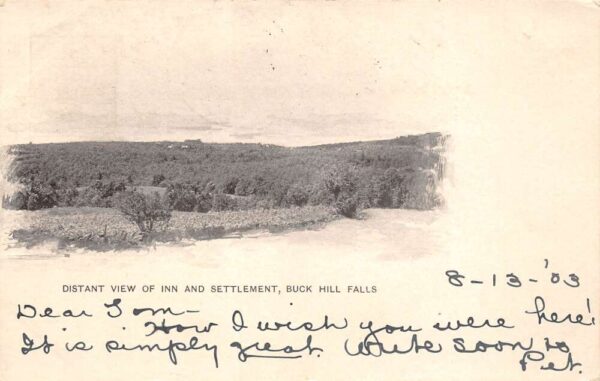 DISTANT VIEW OF INN AND SETTLEMENT, BUCK HILL FALLS
8-13-'03
Dear Tom-
How I wish you were here!
It is simply great. Write soon to
Pet.